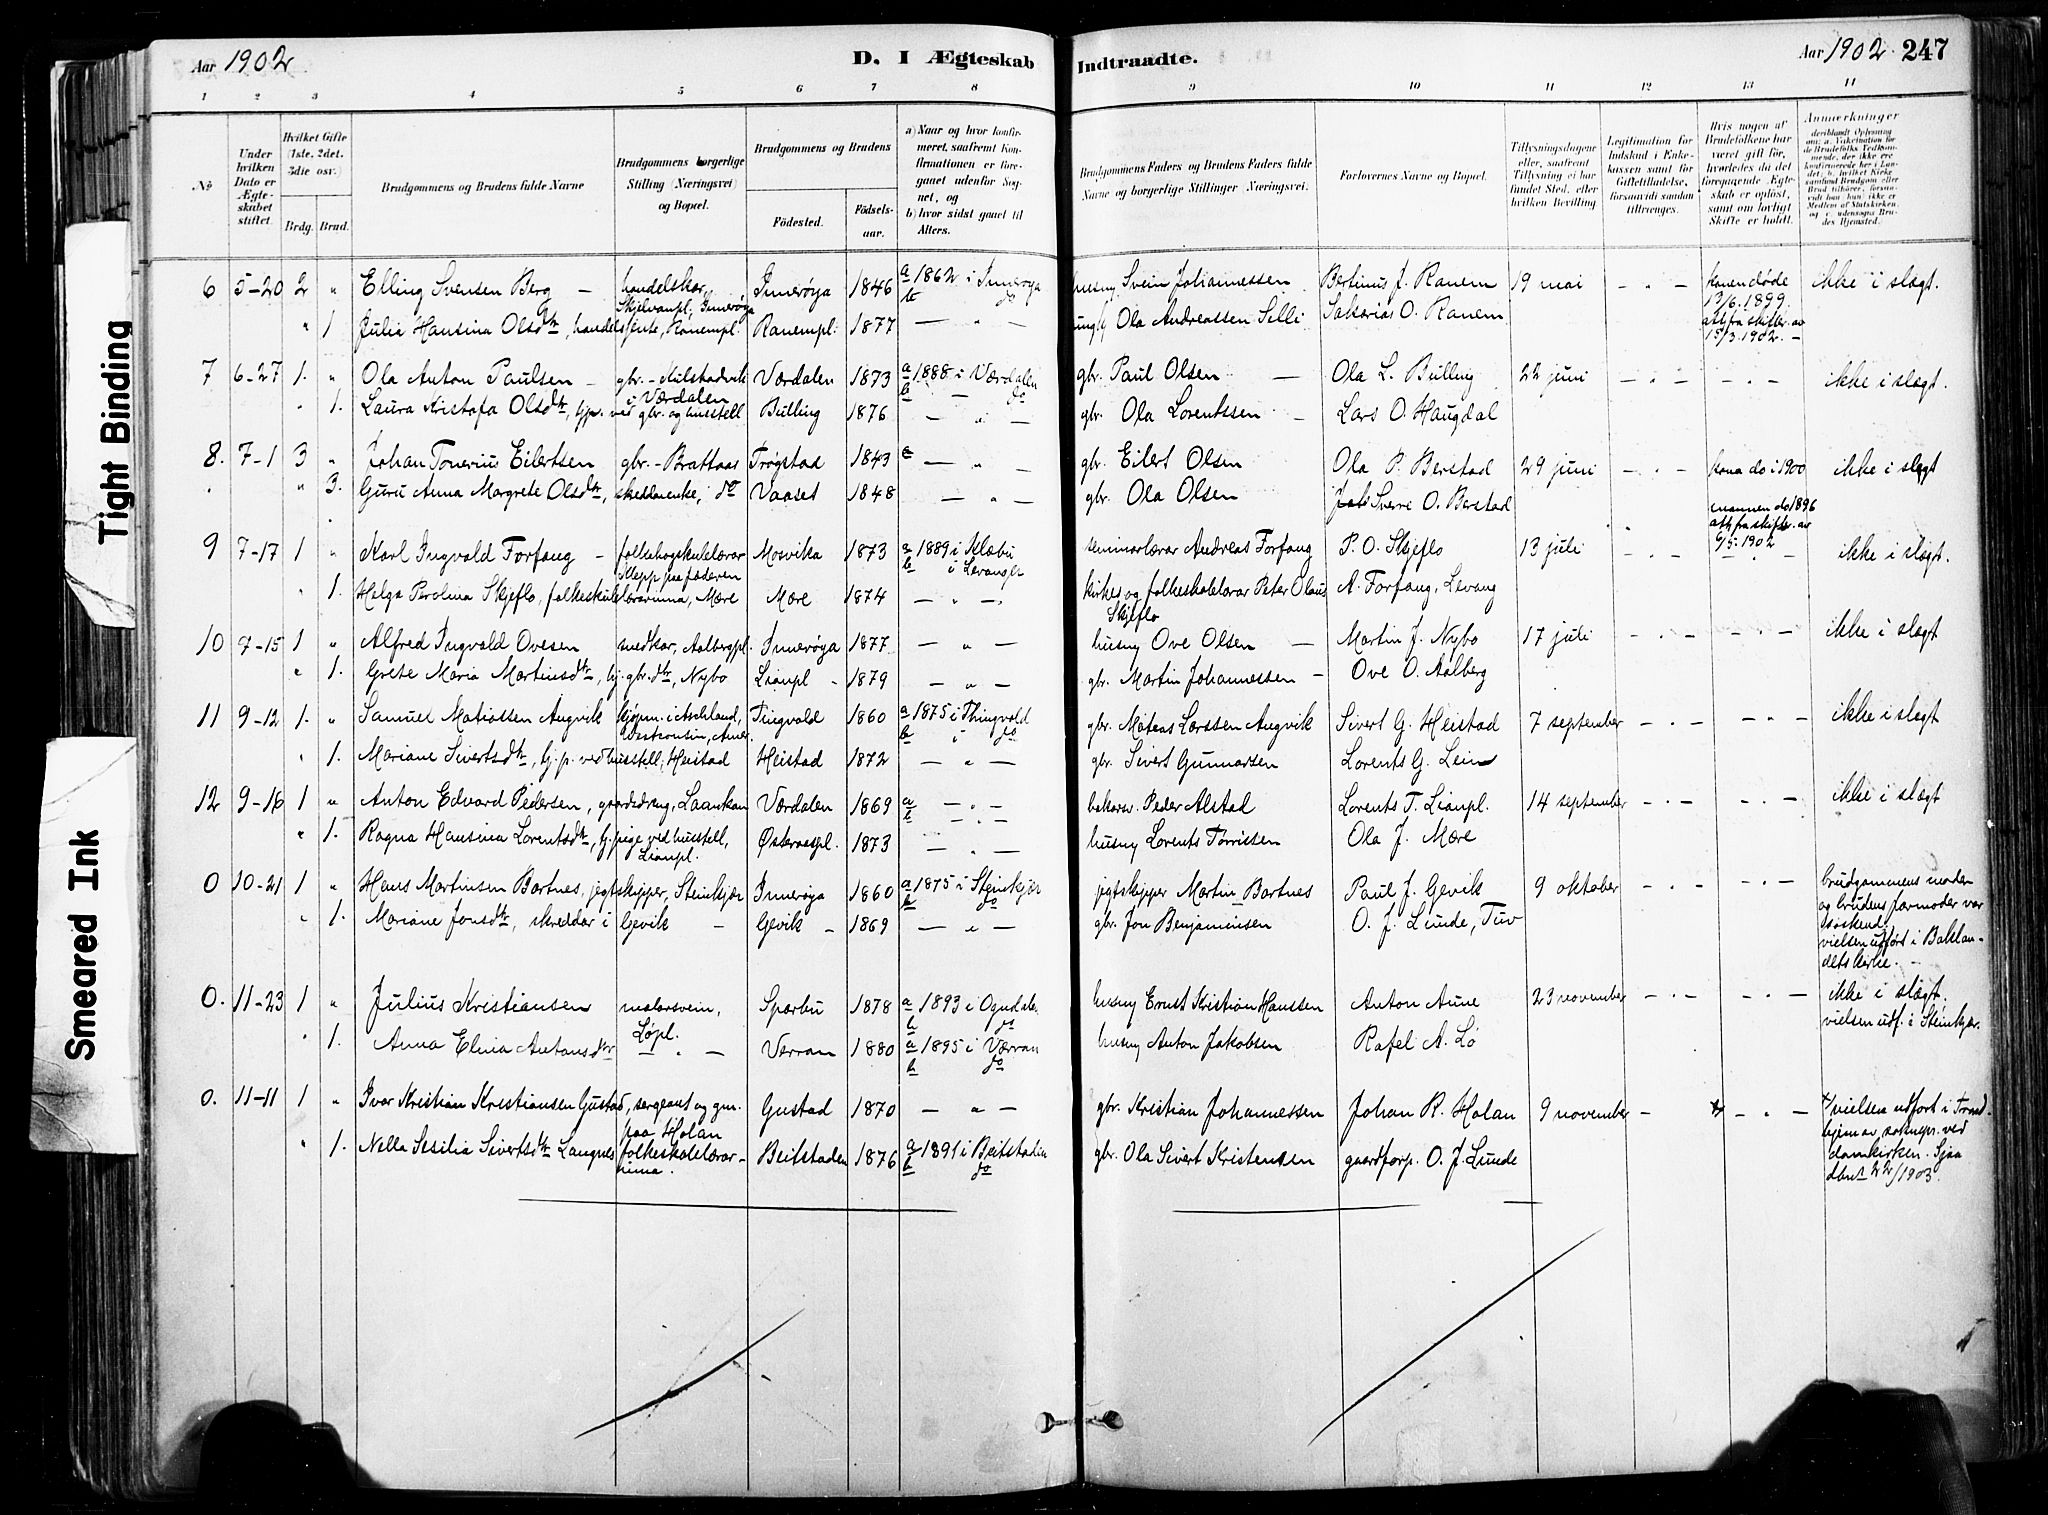 Aar 1902
D. I Ægteskab
Indtraadte.
Aar 1902
247
1 2 3 4 5 6 7 8 9 10 11 12 13 14
No
Under hvilken Dato er Ægteskabet stiftet.
Hvilket Gifte (1ste, 2det, 3die osv.)
Brdg. Brud.
Brudgommens og Brudens fulde Navne
Brudgommens borgerlige Stilling (Næringsvei) og Bopæl.
Brudgommens og Brudens
Fødested.
Fødselsaar.
a) Naar og hvor konfirmeret, saafremt Konfirmationen er foregaaet udenfor Sognet, og
b) hvor sidst gaaet til Alters.
Brudgommens Faders og Brudens Faders fulde Navne og borgerlige Stillinger (Næringsvei).
Forlovernes Navne og Bopæl.
Tillysningsdagene eller, saafremt Tillysning ei har fundet Sted, efter hvilken Bevilling
Legitimation for Indskud i Enkekassen samt for Giftetilladelse, forsaavidt saadan tiltrænges.
Hvis nogen af Brudefolkene har været gift før, hvorledes da det foregaaende Ægteskab er opløst, samt om lovligt Skifte er holdt.
Anmerkninger
6 5-20 2 " Elling Svensen Berg — handelskar, Skjelvanpl. Inderøya Inderøya 1846 a 1862 i Inderøya b do husmy Svein Johannessen Bertinus J. Ranem 19 mai — " — konen døde 13/6 1899. att. fra skifter. av 15/3 1902. — ikke i slægt.
" 1 Julia Hansina Olsdtr, handelsjente, Ranempl. Ranempl. 1877 — " — ungk. Ola Andreassen Selli Sakarias O. Ranem
7 6-27 1. " Ola Anton Paulsen — gbr. - Kulstadvik i Værdalen Værdalen 1873 a 1888 i Værdalen b — do gbr. Paul Olsen — Ola L. Bulling 22 juni — " — — " — ikke i slægt.
" 1. Laura Kristofa Olsdtr, hjp. ved gbr. og husstell Bulling 1876 — " — gbr. Ola Lorentssen — Lars O. Haugdal
8. 7-1 3 " Johan Tonerius Eilertsen gbr. - Brattaas Trøgstad 1843 a — " — gbr. Eilert Olsen Ola P. Berstad 29 juni — " — kona do i 1900 ikke i slægt
" 3. Guru Anna Margrete Olsdtr, skeddarenke, do Vaaset 1848 — " — gbr. Ola Olsen Sverre O. Berstad mannen do 1896 att fra skifter. av 6/5 1902
9 7-17 1 " Karl Ingvald Forfang — folkehøgskulelærar Klepp paa Jæderen Mosvika 1873 a 1889 i Klæbu b i Levanger seminarlærar Andreas Forfang P. O. Skjeflo 13 juli — " — — " — ikke i slægt.
" 1. Helga Perolina Skjeflo, folkeskulelærarinna, Mære Mære 1874 — " — kirkes og folkeskolelærar Peter Olaus Skjeflo A. Forfang, Levang
10 7-15 1 " Alfred Ingvald Ovesen snedkar, Aalbergpl. Inderøya 1877 — " — husmy Ove Olsen — Martin J. Nybo 17 juli — " — — " — ikke i slægt
" 1. Grete Maria Martinsdtr, hj. gbr. dtr, Nybo Lianpl — 1879 — " — gbr. Martin Johannessen — Ove O. Aalberg
11 9-12 1. " Samuel Matiassen Angvik kjøpm. i Aschland, Wisconsin, Amer. Tingvold 1860 a 1875 i Thingvold b i do gbr. Mateas Larssen Angvik Sivert G. Heistad 7 september — " — — " — ikke i slægt
" 1. Mariane Sivertsdtr, hj. p. ved husstell, Heistad Heistad 1872 — " — gbr. Sivert Gunnarsen Lorents G. Lein
12 9-16 1 " Anton Edvard Pedersen, gaardsdreng, Laankan Værdalen 1869 a — " — b — " — Peder Alstad Lorents T. Lianpl. 14 september — " — — " — ikke i slægt
" 1. Ragna Hansina Lorentsdtr, hj. pige ved husstell, Lianpl. Østeraaspl. 1873 — " — husmy Lorents Tørrissen Ola J. Mære
0 10-21 1 " Hans Martinsen Bartnes, jegtskipper, Steinkjær Inderøya 1860 a 1875 i Steinkjær b do jegtskipper Martin Bartnes Paul J. Gevik 9 oktober — " — — " — brudgommens moder og brudens farmoder var søskend. vielsen utført i Baklandets kirke. —
" 1. Mariane Jonsdtr, skreddar i Gevik — Gevik — 1869 — " — gbr. Jon Benjaminsen O. J. Lunde, Tuv
0. 11-23 1 " Julius Kristiansen malarsvein, Løpl. Sparbu 1878 a 1893 i Ogndalen b do husmy Ernst Kristian Hanssen Anton Aune 23 november — " — — " — ikke i slægt. vielsen udf. i Steinkjær.
" 1. Anna Elina Antonsdtr — " — Verran 1880 a 1895 i Værran b do husmy Anton Jakobsen Rafel A. Lø
0. 11-11 1 " Ivar Kristian Kristiansen Gustad, sergeant og gm. paa Holan Gustad 1870 — " — gbr. Kristian Johannessen Johan R. Holan 9 november — " — " — vielsen udført i Trondhjem av soknepr. ved domkirken.
" 1. Nella Sesilia Sivertsdtr Langnes folkeskolelærarinna. Beitstaden 1876 a 1891 i Beitstaden b do gbr. Ola Sivert Kristensen gaardforp. O. J. Lunde
Tight Binding
Smeared Ink